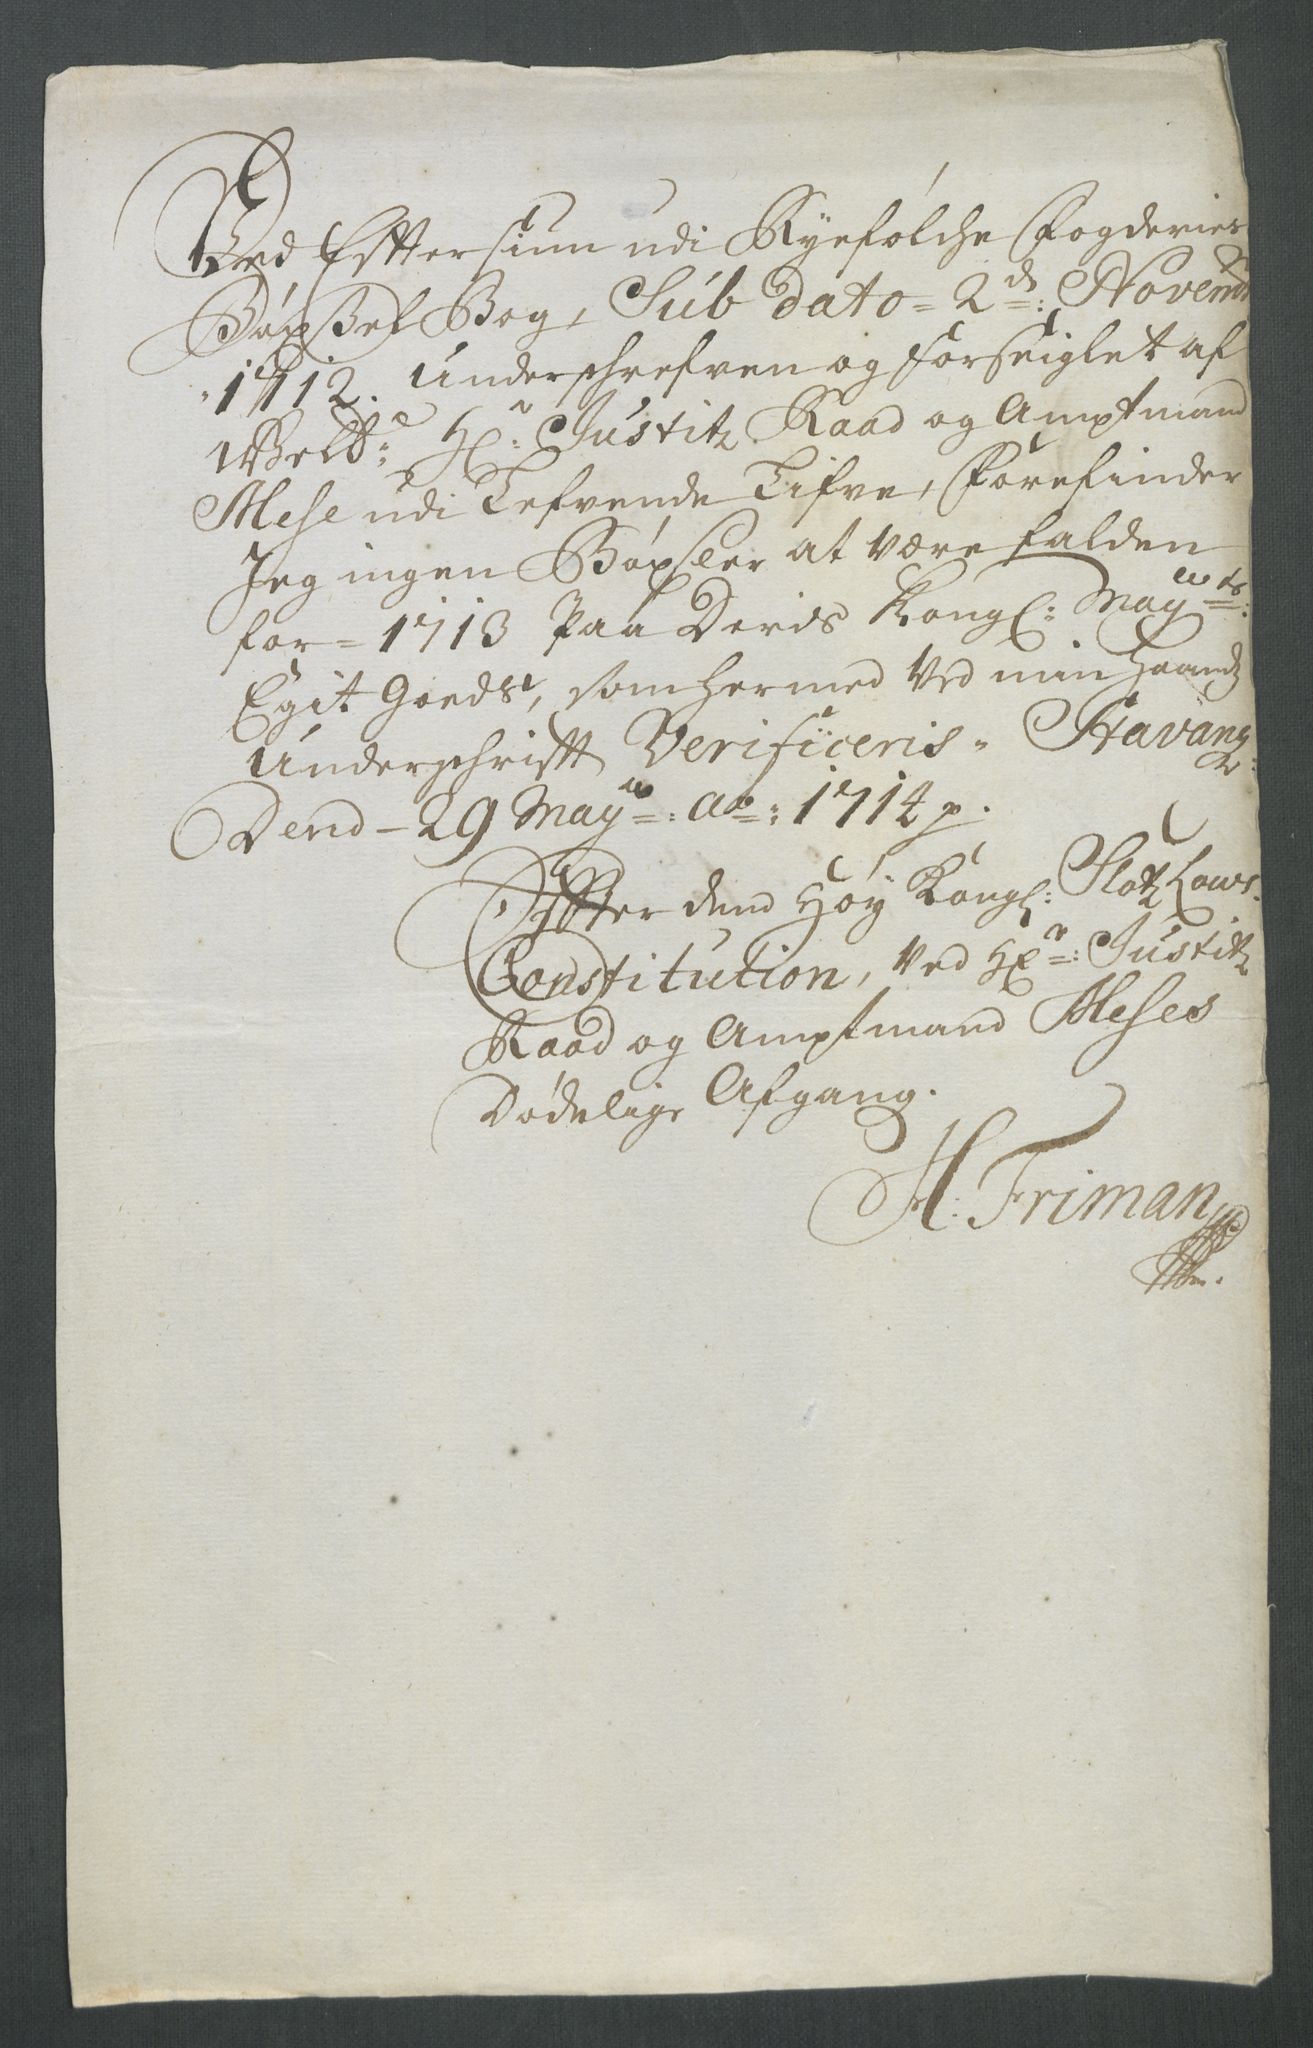 Ved Efttersiun udi Ryefølche Fogderies
Bøxsel Bog, Sub dato = 2de: Novemb:
1712. Underschrefven og forseiglet af
Welbe: Hr: Justitz Raad og Amptmand
Mese udi Lefvende Lifve, Forefinder
Jeg ingen Bøxseler at være falden
for = 1713 Paa Deris Kongl: Mayts:
Egit Goeds, som hermed Ved min Haands
Underschrifft Verificeris. Stavang:
Dend – 29 May: Ao: 1714 p.
Effter dend Høy Kongl: Slotz Lows
Constitution, Ved Hr: Justitz
Raad og Amptmand Meses
Dødelige Afgang.
H: Friman